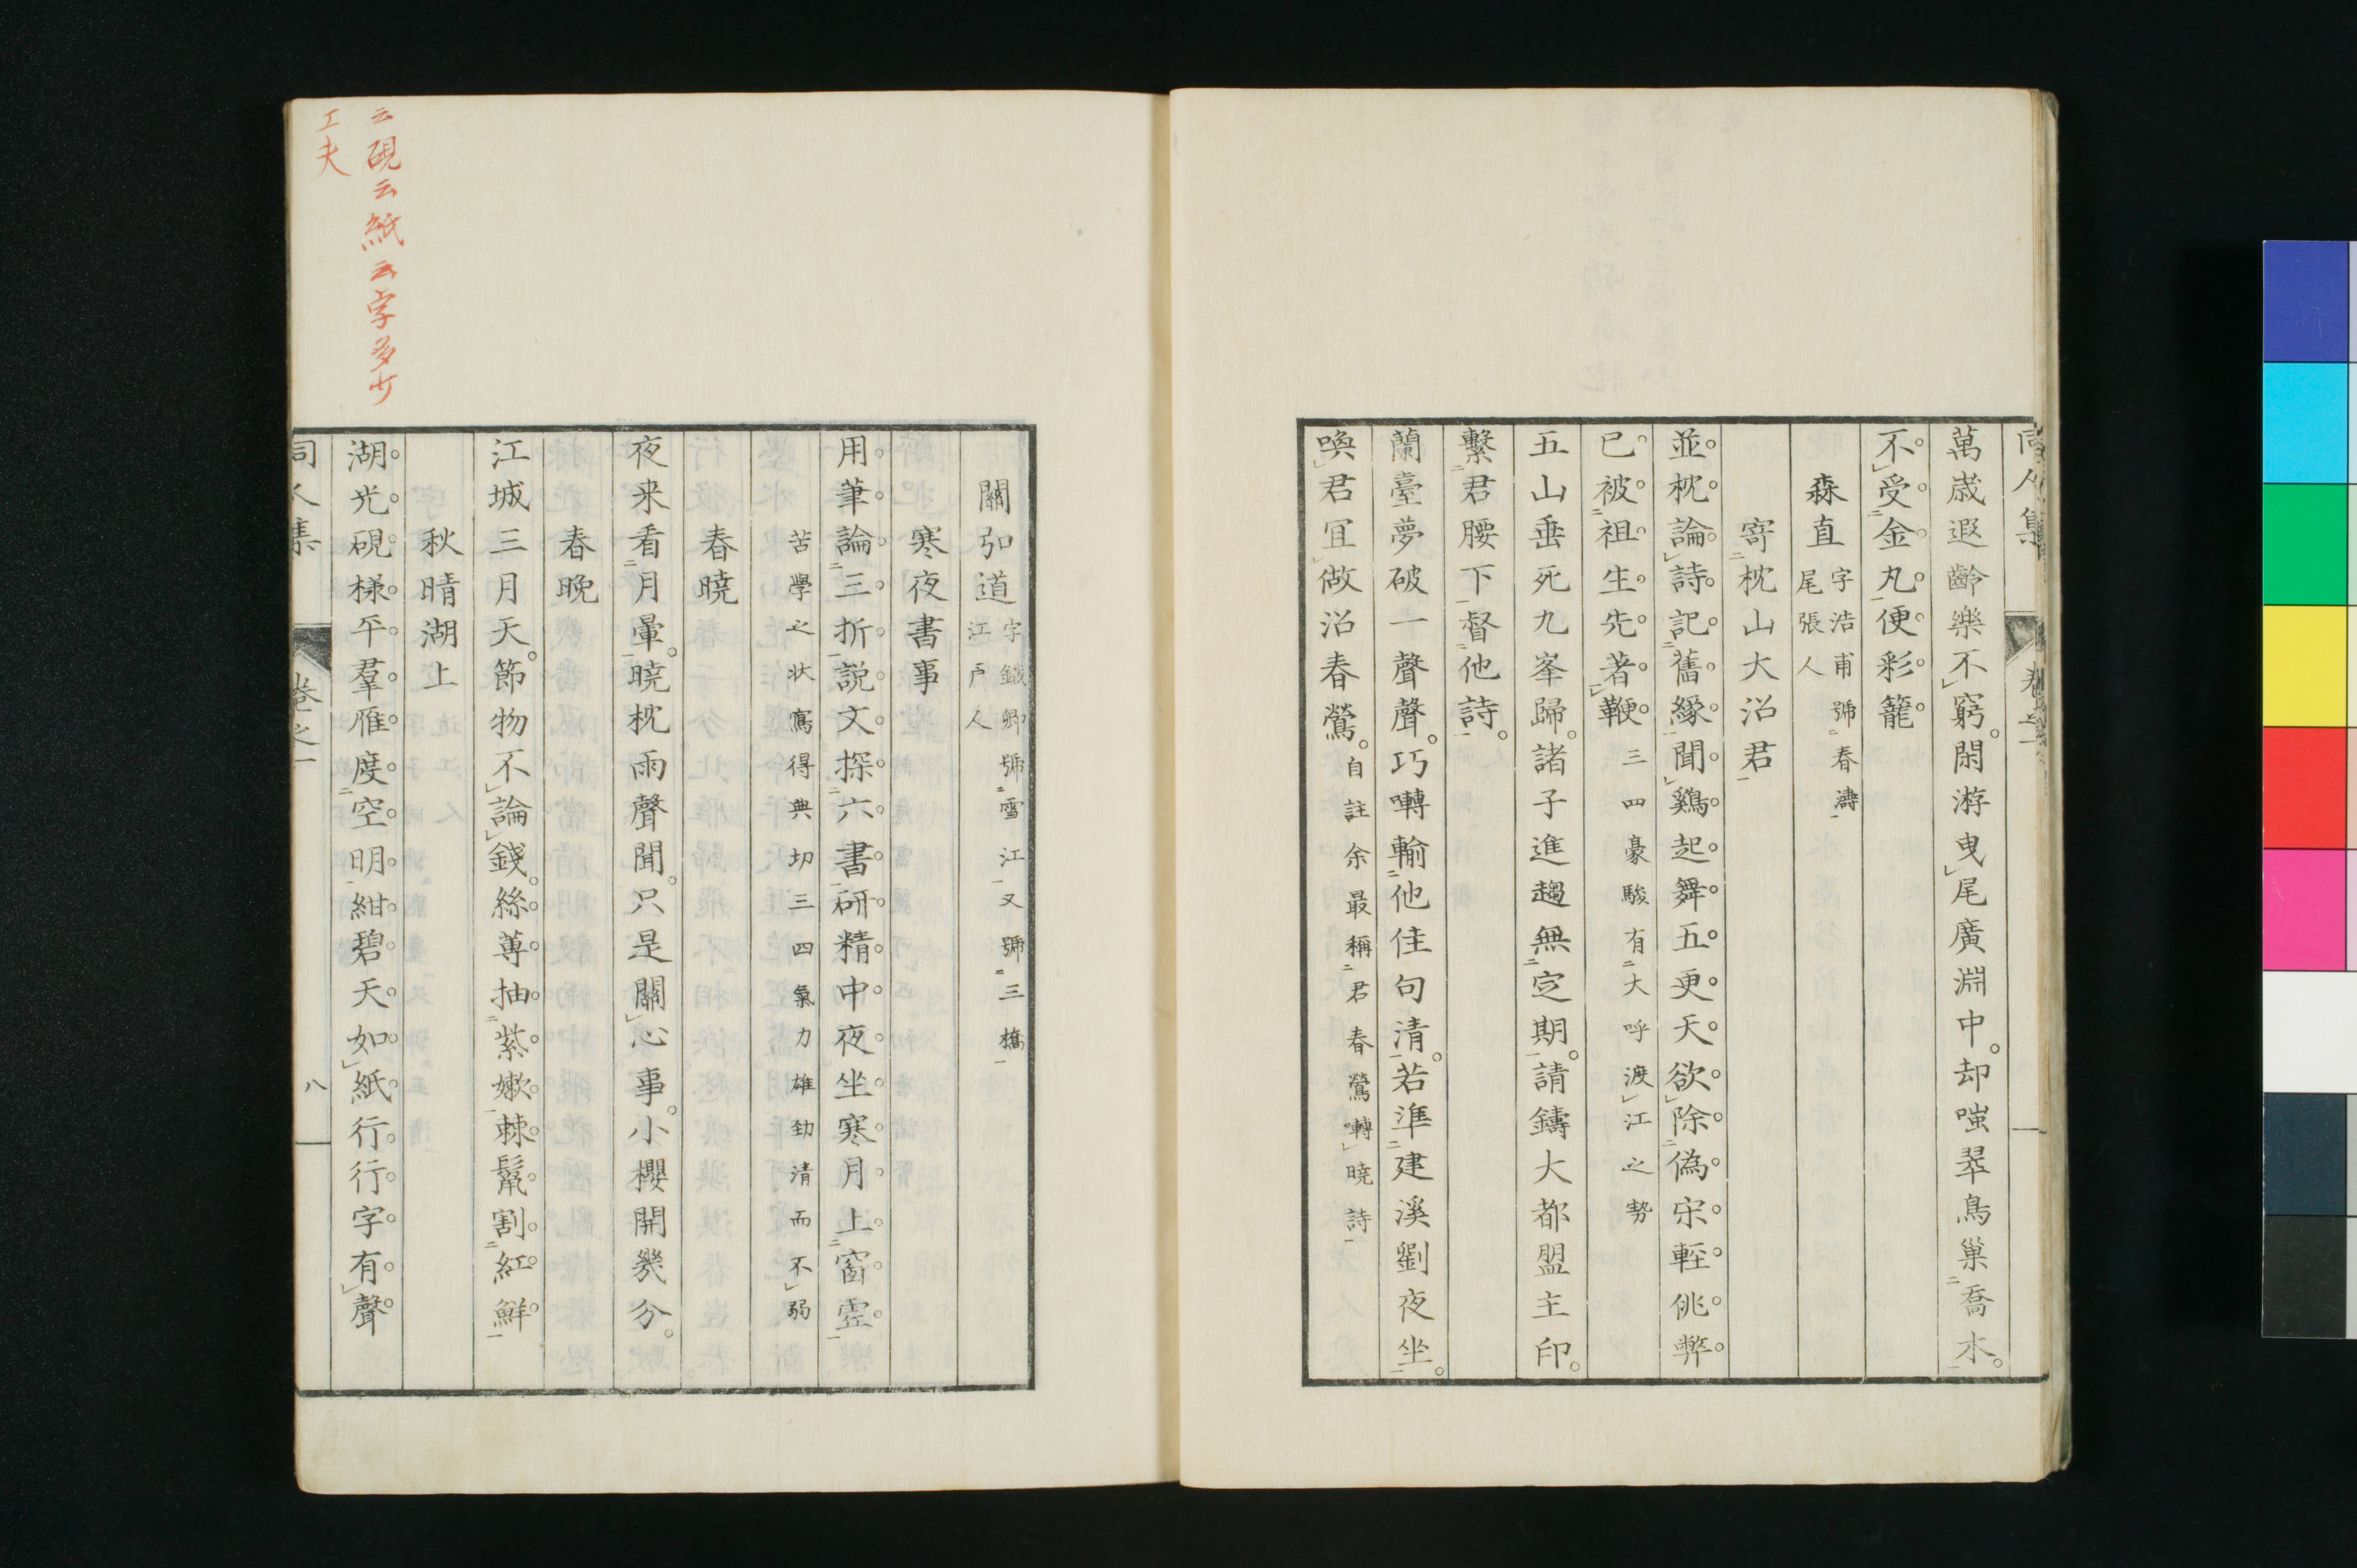 萬歳遐齡樂不窮閑游曳尾廣淵中却嗤翠鳥巢喬木
不受金丸便彩籠
森直字浩甫號春濤尾張人
寄枕山大沼君
並枕論詩記舊緣聞鷄起舞五更天欲除偽宋輕佻弊
已被祖生先著鞭三四豪駿有大呼渡江之勢
五山垂死九峯歸諸子進趨無定期請鑄大都盟主印
繫君腰下督他詩
蘭臺夢破一聲聲巧囀輸他佳句清若準建溪劉夜坐
喚君冝做沼春鶯自註余最稱君春鶯囀曉詩
關弘道字鐵卿號雪江又號三橋江戶人
寒夜書事
用筆論三折説文探六書研精中夜坐寒月上窗虛
苦學之状寫得典切三四氣力雄勁清而不弱
春曉
夜来看月暈曉枕雨聲聞只是關心事小櫻開幾分
春晩
江城三月天節物不論錢絲蓴抽紫嫰棘鬣割紅鮮
秋晴湖上
湖光硯樣平羣雁度空明紺碧天如紙行行字有聲
同人集
卷之一
八
云硯云紙云字多少
工夫